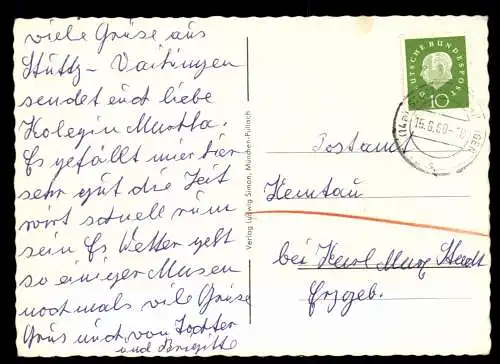 viele Grüse aus
Stuttg- Vaihingen
sendet euch liebe
Kolegin Martha.
Es gefällt mier hier
sehr gut die Zeit
wirt schnell rüm
sein Es Wetter geht
so einiger Masen
noch mals viele Grüse
Grüs und von Tochter
und Brigitte
Verlag Ludwig Simon, München-Pullach
DEUTSCHE BUNDESPOST
10
(14a)
15.6.60-18
Postamt
Kemtau
bei Karl Marx Stadt
Erzgeb.